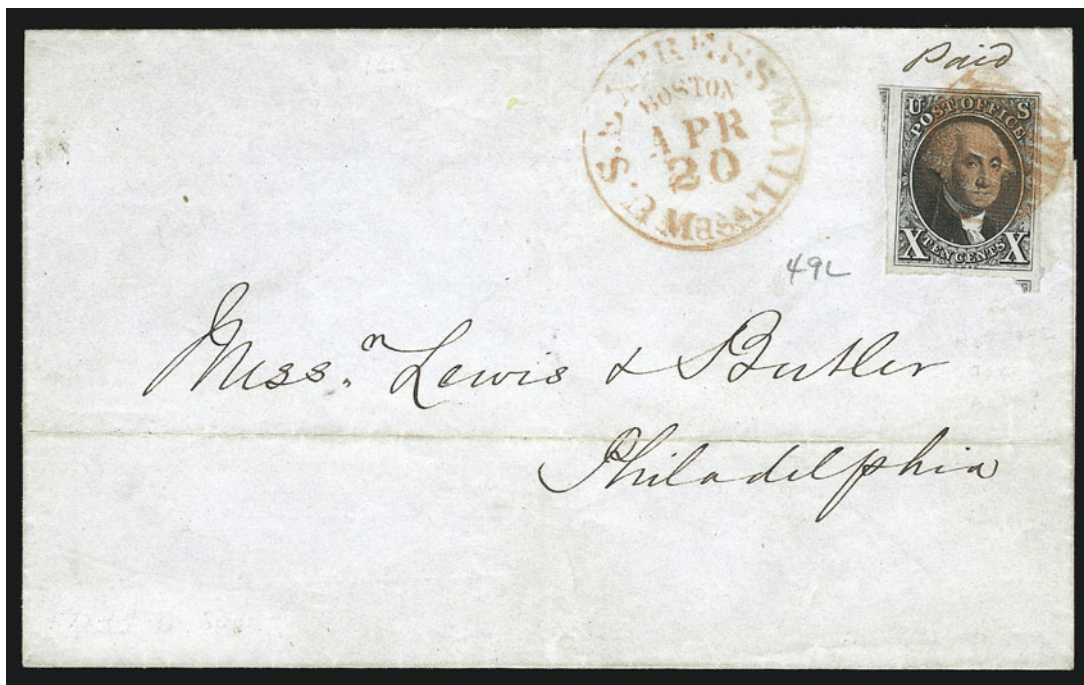 Paid
U.S. EXPRESS MAIL
BOSTON
APR
20
U S
POST OFFICE
X TEN CENTS X
49L
Mess.rs Lewis & Butler
Philadelphia